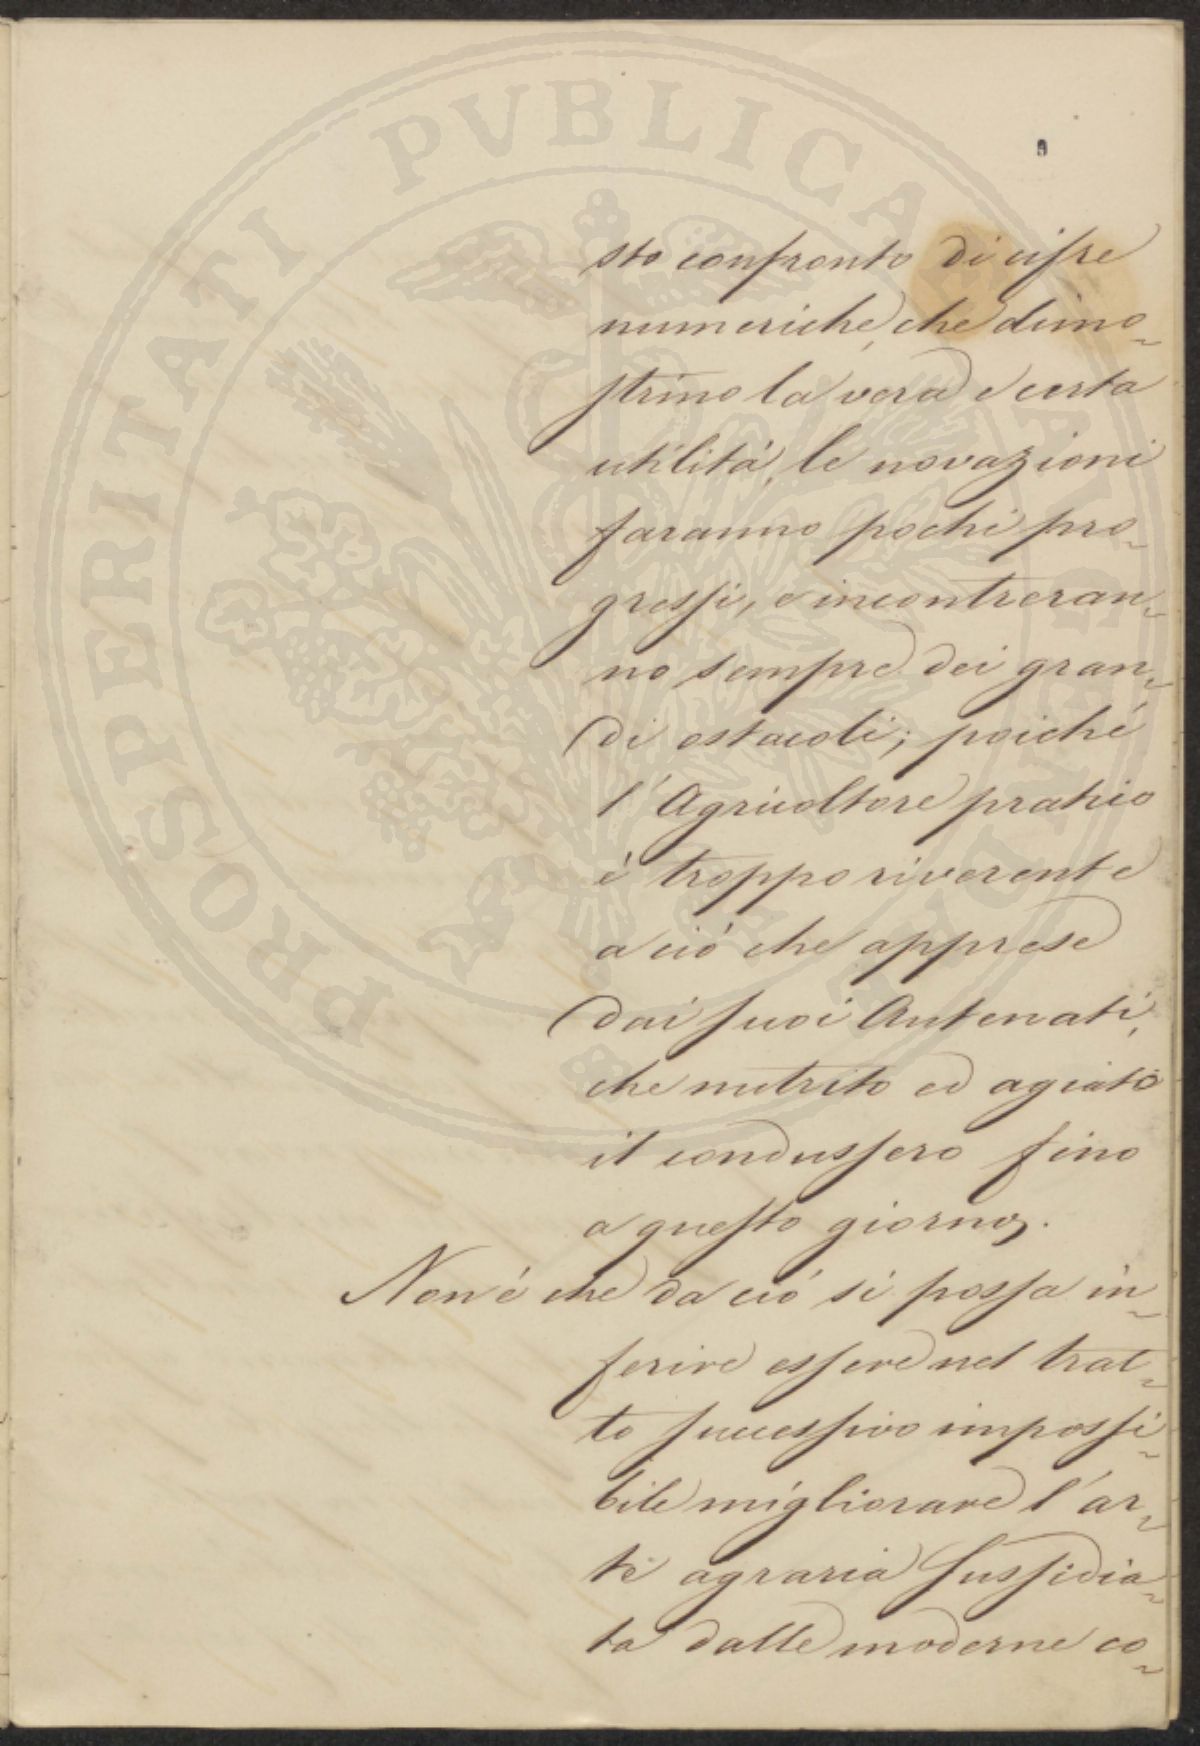 PROSPERITATI PUBLICAE AUGENDAE
9
sto confronto di cifre
numeriche, che dimo
strino la vera e certa
utilità, le novazioni
faranno pochi pro
gressi, e incontreran
no sempre dei gran
di ostacoli; poiché
l'Agricoltore pratico
è troppo riverente
a ciò che apprese
dai suoi Antenati,
che nutrito ed agiato
il condussero fino
a questo giorno.
Non é che da ció si possa in
ferire essere nel trat
to successivo impossi
bile migliorare l'ar
te agraria sussidia
ta dalle moderne co